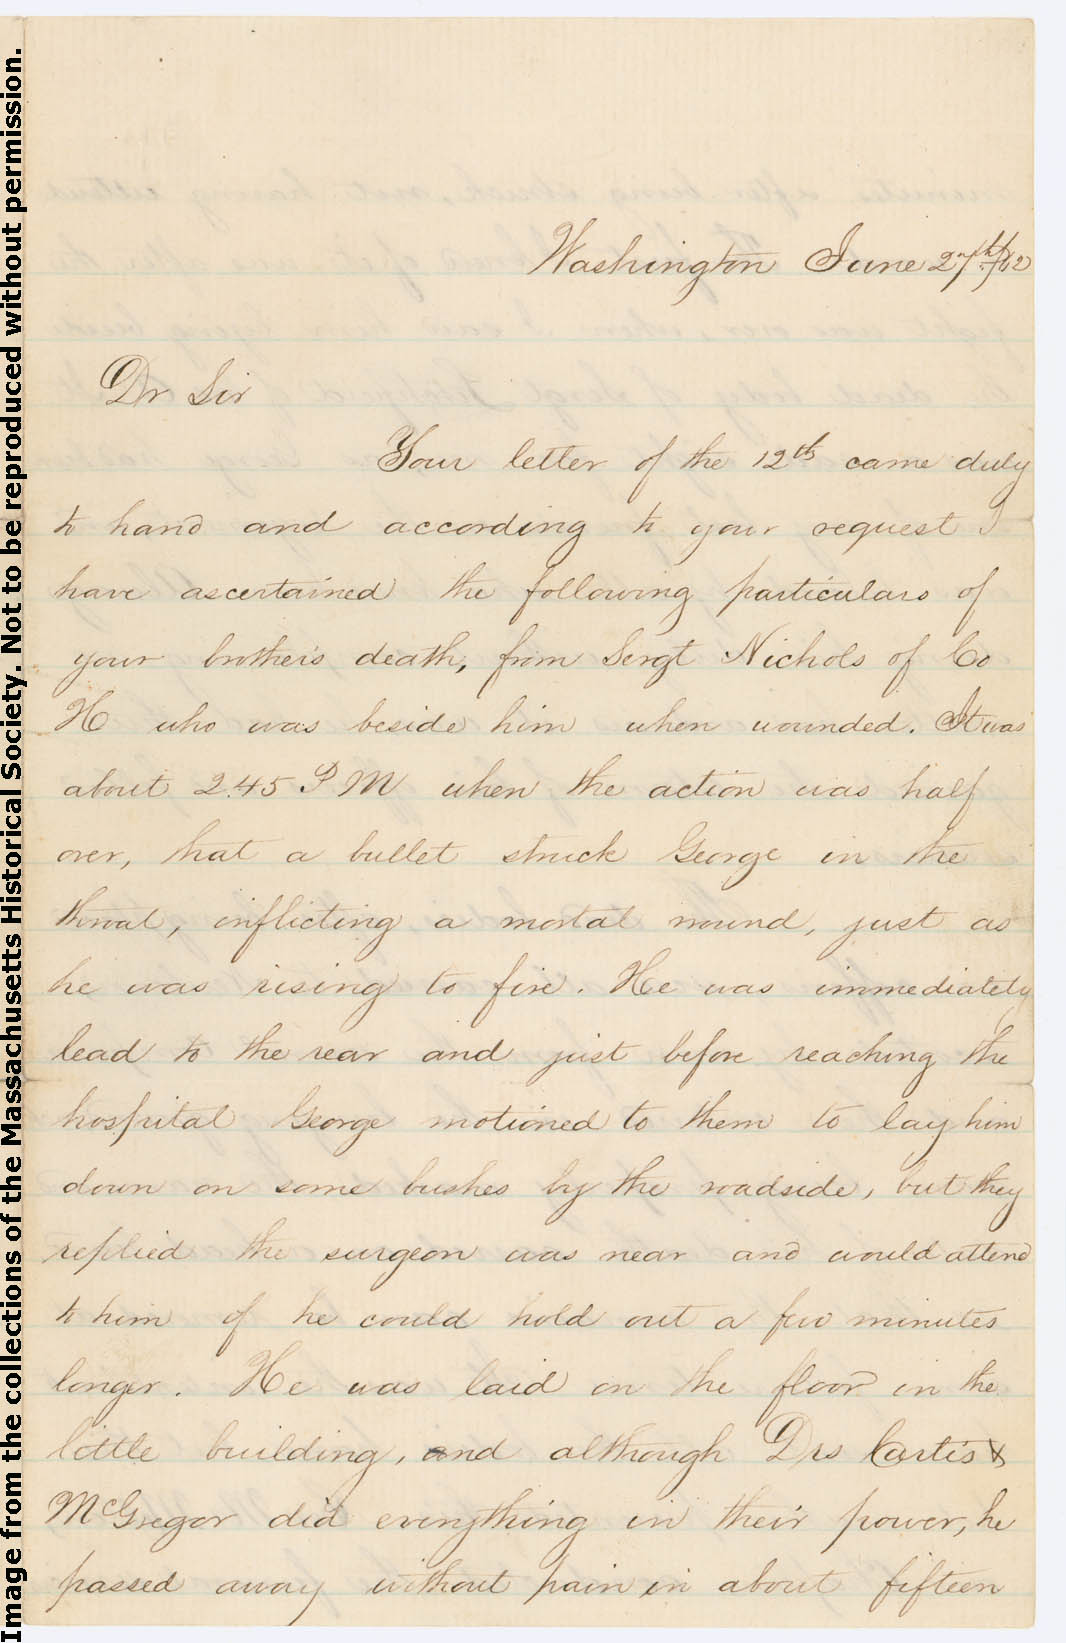 Washington June 27th /62
Dr Sir
Your letter of the 12th came duly
to hand and according to your request I
have ascertained the following particulars of
your brother's death, from Sergt Nichols of Co
H who was beside him when wounded. It was
about 2.45 P M when the action was half
over, that a bullet struck George in the
throat, inflicting a mortal wound, just as
he was rising to fire. He was immediately
lead to the rear and just before reaching the
hospital George motioned to them to lay him
down on some bushes by the roadside, but they
replied the surgeon was near and would attend
to him if he could hold out a few minutes
longer. He was laid on the floor in the
little building, and although Drs Curtis &
McGregor did everything in their power, he
passed away without pain in about fifteen
Image from the collections of the Massachusetts Historical Society. Not to be reproduced without permission.